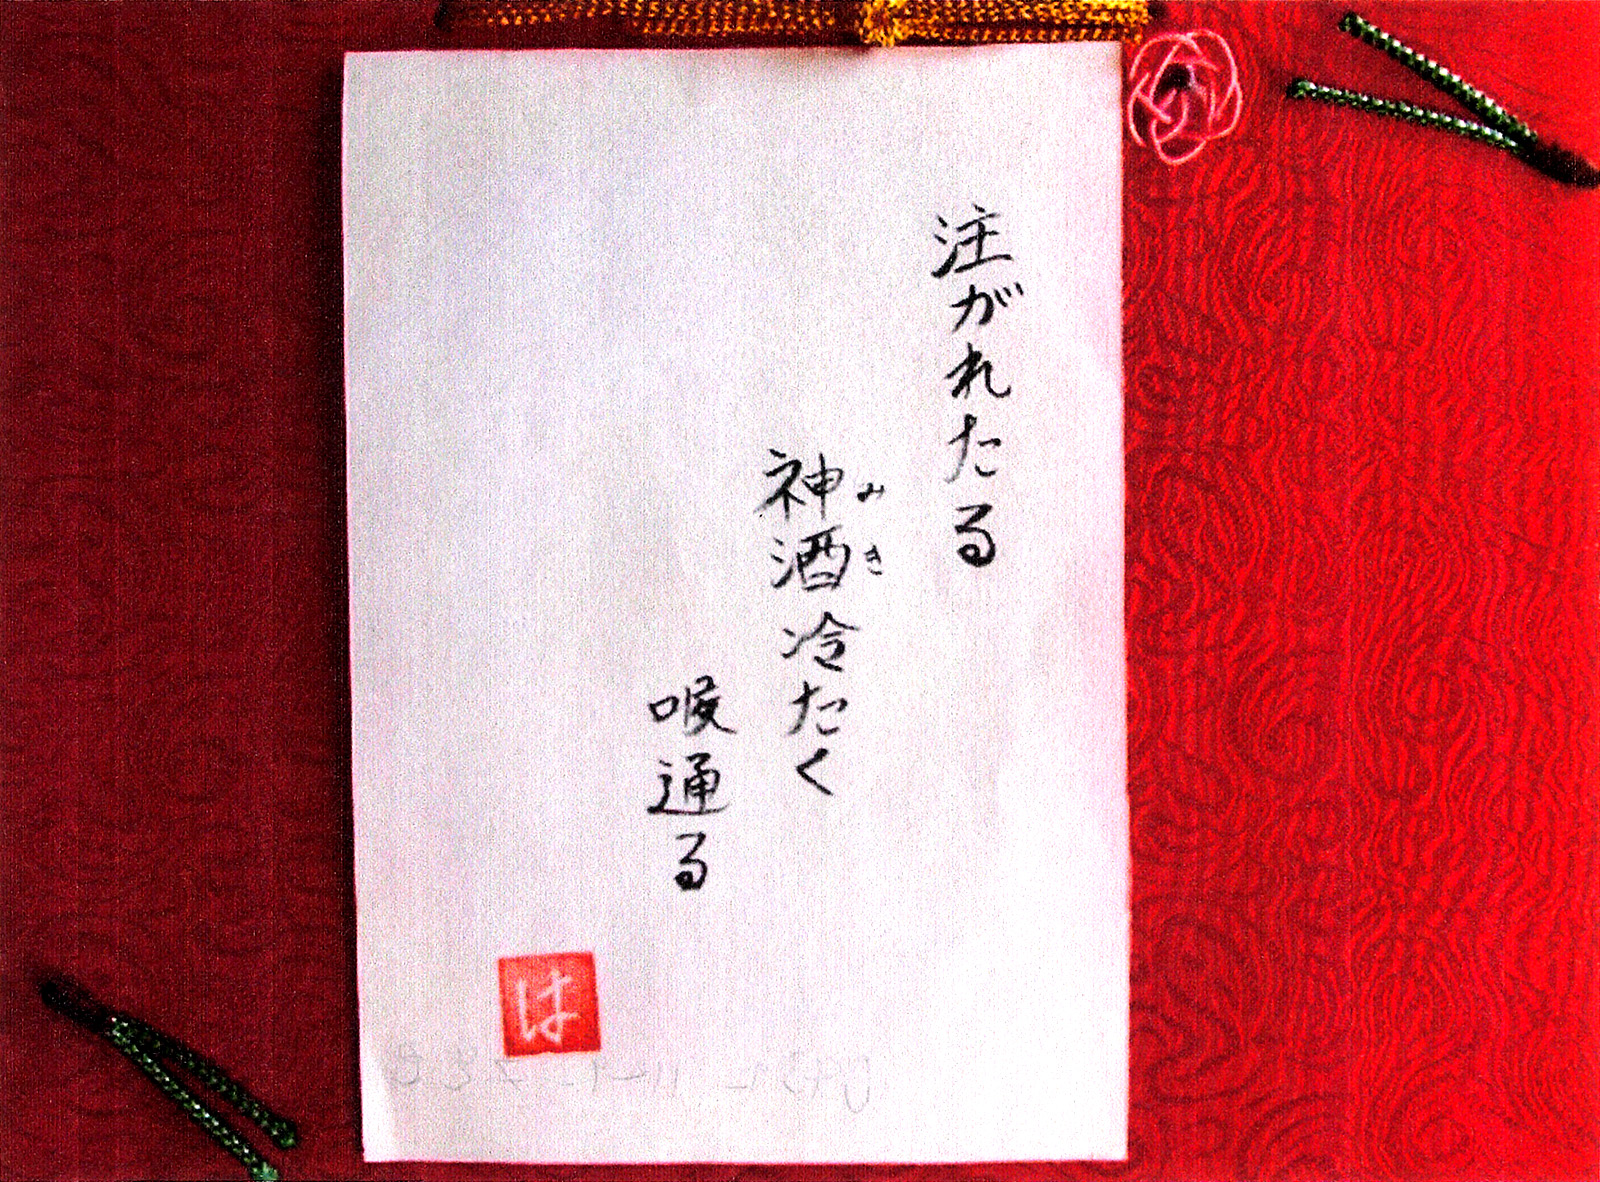 注がれたる
神酒冷たく
みき
喉通る
は